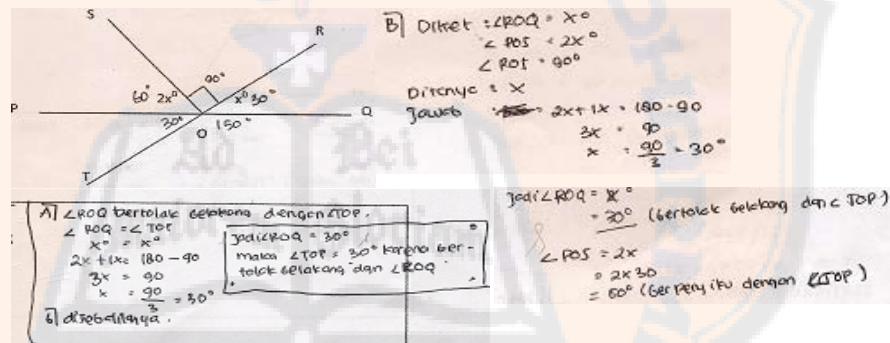 S
R
90°
60° 2x°
x° 30°
P
Q
30°
O
150°
T
B] Diket : ∠ROQ = x°
∠ POS = 2x°
∠ ROS = 90°
Ditanya : x
Jawab : 2x + 1x = 180 - 90
3x = 90
x = 90/3 = 30°
Jadi ∠ROQ = x°
= 30° (bertolak belakang dgn ∠ TOP)
∠ POS = 2x
= 2x30
= 60° (berpenyiku dengan ∠TOP)
A] ∠ROQ bertolak belakang dengan ∠TOP.
∠ ROQ = ∠ TOP
x° = x°
2x + 1x = 180 - 90
3x = 90
x = 90/3 = 30°
Jadi ∠ROQ = 30°
maka ∠TOP = 30° karena ber-
tolak belakang dgn ∠ROQ.
b] disebelahnya.
Ad Bei